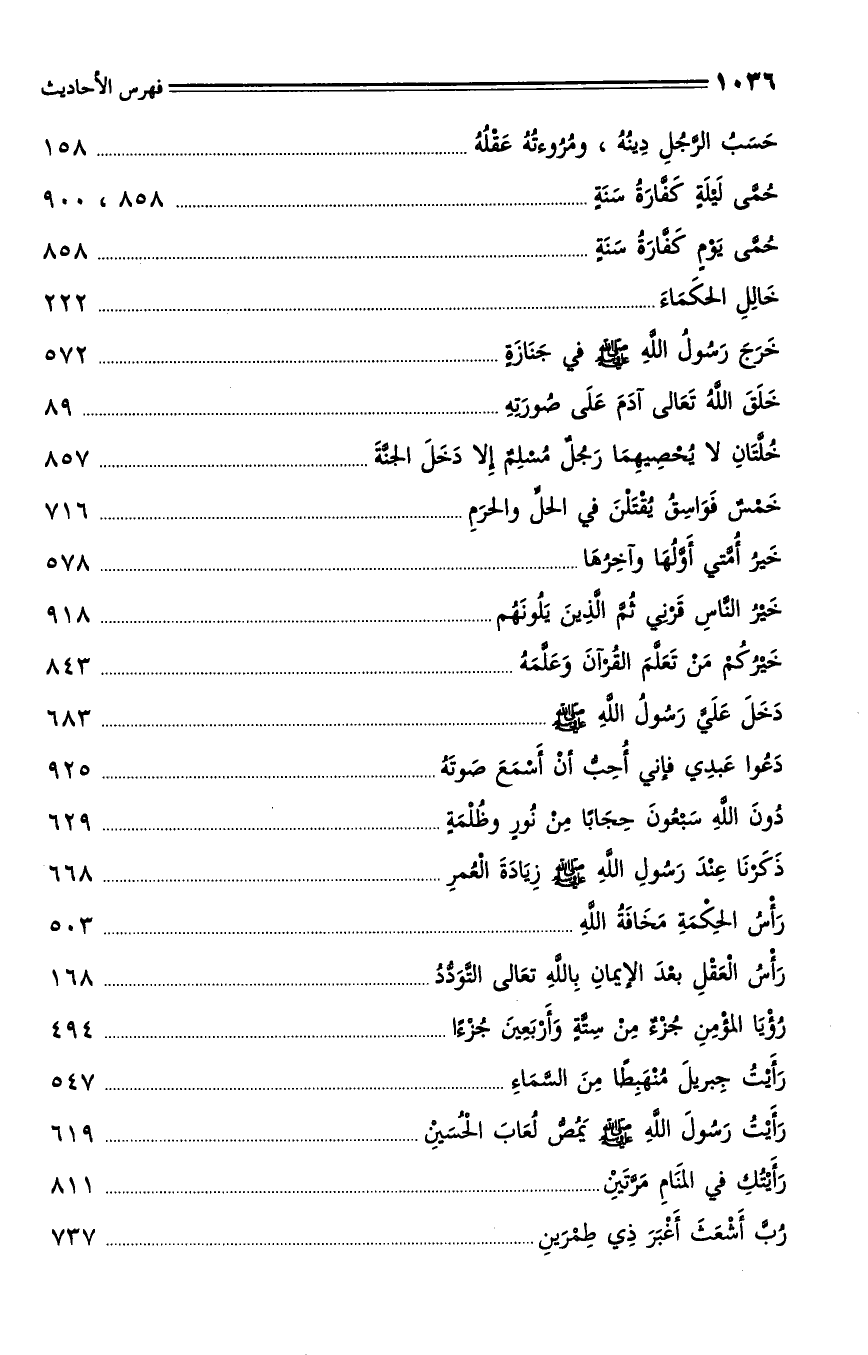 ١٠٣٦ فهرس الأحاديث
حَسَبُ الرَّجُلِ دِينُهُ ، ومُرُوءتُهُ عَقْلُهُ ١٥٨
حُمَّى لَيْلَةٍ كَفَّارَةُ سَنَةٍ ٨٥٨ ، ٩٠٠
حُمَّى يَوْمٍ كَفَّارَةُ سَنَةٍ ٨٥٨
خَالِلِ الحكَمَاءَ ٢٢٢
خَرَجَ رَسُولُ اللَّهِ ﷺ في جَنَازَةٍ ٥٧٢
خَلَقَ اللَّهُ تَعَالى آدَمَ عَلَى صُورَتِهِ ٨٩
خُلَّتَانِ لا يُحْصِيهِمَا رَجُلٌ مُسْلِمٌ إِلا دَخَلَ الجنَّةَ ٨٥٧
خَمْسٌ فَوَاسِقُ يُقْتَلْنَ في الحلِّ والحرَمِ ٧١٦
خَيرُ أُمَّتي أَوَّلُهَا وآخِرُهَا ٥٧٨
خَيْرُ النَّاسِ قَرْنِي ثُمَّ الَّذِينَ يَلُونَهُم ٩١٨
خَيْرُكُمْ مَنْ تَعَلَّمَ القُرْآنَ وَعَلَّمَهُ ٨٤٣
دَخَلَ عَلَيَّ رَسُولُ اللَّهِ ﷺ ٦٨٣
دَعُوا عَبدِي فإني أُحِبُّ أنْ أَسْمَعَ صَوتَهُ ٩٢٥
دُونَ اللَّهِ سَبْعُونَ حِجَابًا مِنْ نُورٍ وظُلْمَةٍ ٦٢٩
ذَكَرْنَا عِنْدَ رَسُولِ اللَّهِ ﷺ زِيَادَةَ الْعُمرِ ٦٦٨
رَأْسُ الحِكْمَةِ مَخَافَةُ اللَّهِ ٥٠٣
رَأْسُ الْعَقْلِ بعْدَ الإيمانِ بِاللَّهِ تعَالى التَّوَدُّدُ ١٦٨
رُؤْيَا المؤْمِنِ جُزْءٌ مِنْ سِتَّةٍ وَأَرْبَعِينَ جُزْءًا ٤٩٤
رَأَيْتُ جِبريلَ مُنْهَبِطًا مِنَ السَّمَاءِ ٥٤٧
رَأَيْتُ رَسُولَ اللَّهِ ﷺ يَمُصُّ لُعَابَ الْحُسَيْنِ ٦١٩
رَأَيْتُكِ في المنَامِ مَرَّتَيْنِ ٨١١
رُبَّ أَشْعَثَ أَغْبَرَ ذِي طِمْرَينِ ٧٣٧